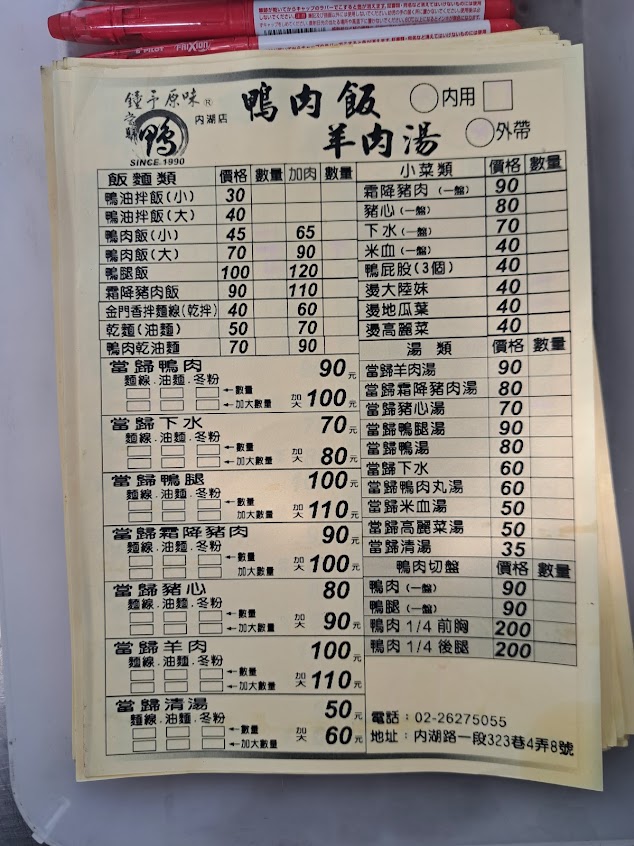 PILOT FRIXION
鐘予原味®
當歸鴨
內湖店
SINCE.1990
鴨肉飯
羊肉湯
內用
外帶
飯麵類 價格 數量 加肉 數量
鴨油拌飯(小) 30
鴨油拌飯(大) 40
鴨肉飯(小) 45 65
鴨肉飯(大) 70 90
鴨腿飯 100 120
霜降豬肉飯 90 110
金門香拌麵線(乾拌) 40 60
乾麵(油麵) 50 70
鴨肉乾油麵 70 90
當歸鴨肉 90元
麵線.油麵.冬粉
←數量
←加大數量 加大 100元
當歸下水 70元
麵線.油麵.冬粉
←數量
←加大數量 加大 80元
當歸鴨腿 100元
麵線.油麵.冬粉
←數量
加大數量 加大 110元
當歸霜降豬肉 90元
麵線.油麵.冬粉
←數量
←加大數量 加大 100元
當歸豬心 80
麵線.油麵.冬粉
←數量
←加大數量 加大 90元
當歸羊肉 100元
麵線.油麵.冬粉
←數量
←加大數量 加大 110元
當歸清湯 50元
麵線.油麵.冬粉
←數量
←加大數量 加大 60元
小菜類 價格 數量
霜降豬肉(一盤) 90
豬心(一盤) 80
下水(一盤) 70
米血(一盤) 40
鴨屁股(3個) 40
燙大陸妹 40
燙地瓜葉 40
燙高麗菜 40
湯類 價格 數量
當歸羊肉湯 90
當歸霜降豬肉湯 80
當歸豬心湯 70
當歸鴨腿湯 90
當歸鴨湯 80
當歸下水 60
當歸鴨肉丸湯 60
當歸米血湯 50
當歸高麗菜湯 50
當歸清湯 35
鴨肉切盤 價格 數量
鴨肉(一盤) 90
鴨腿(一盤) 90
鴨肉1/4前胸 200
鴨肉1/4後腿 200
電話：02-26275055
地址：內湖路一段323巷4弄8號